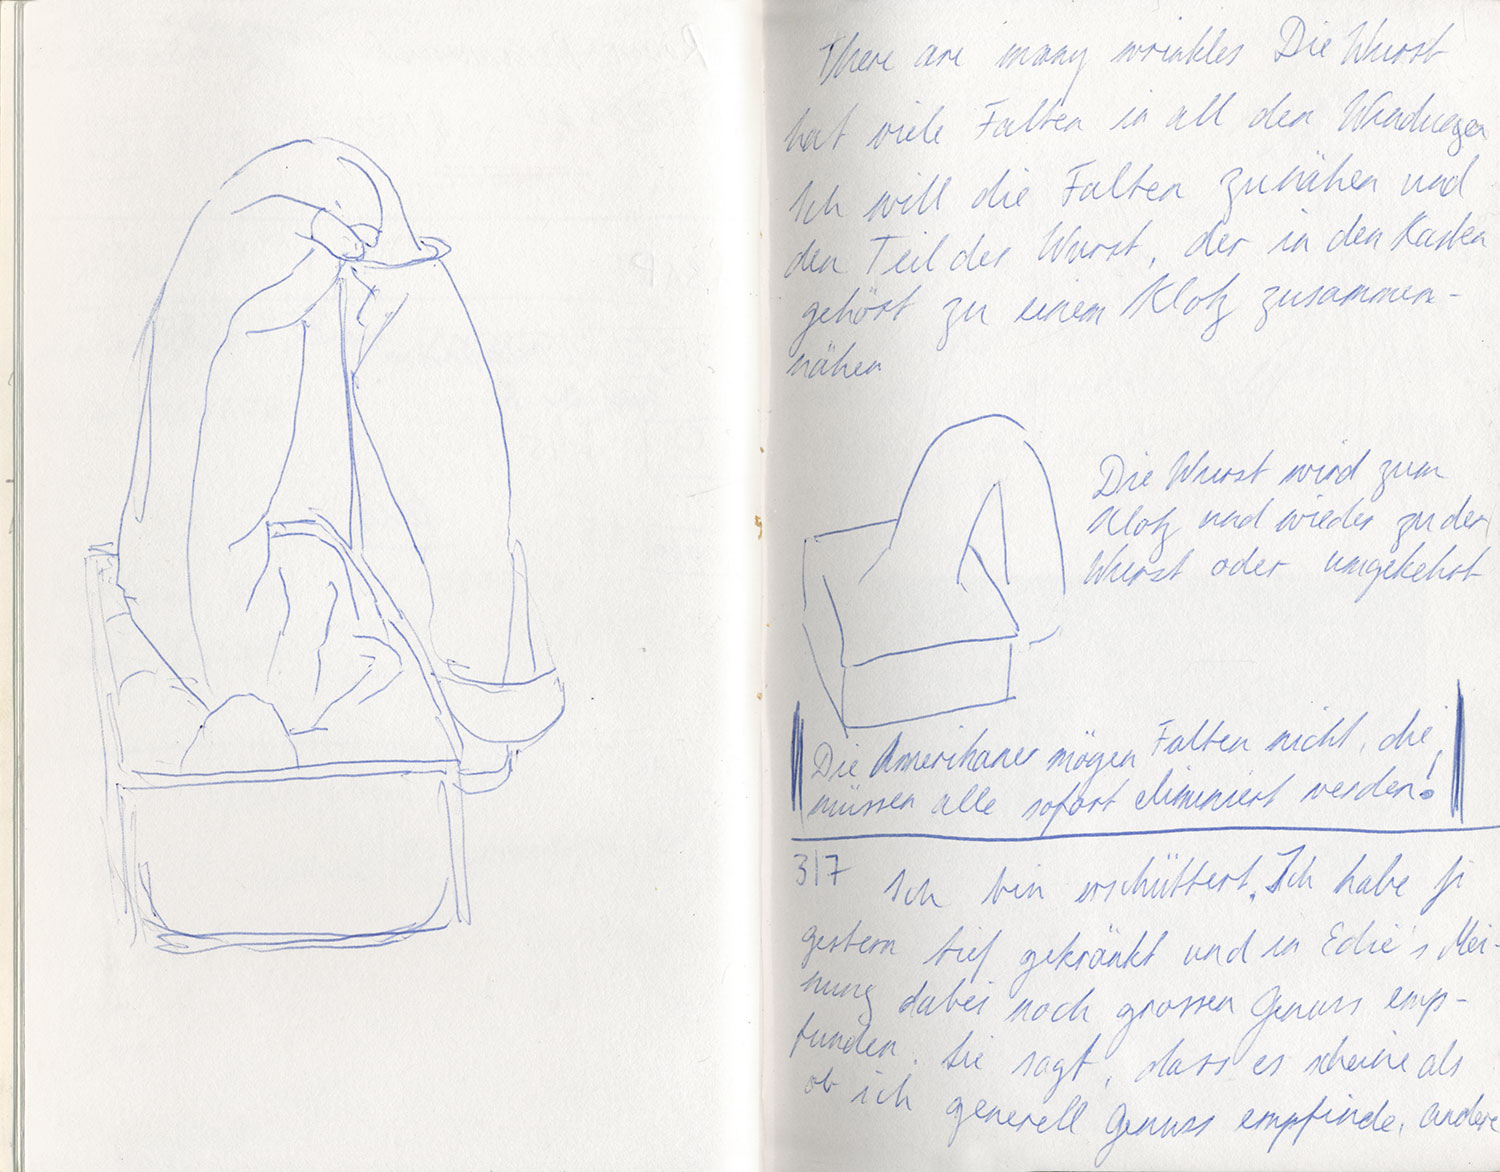 There are many wrinkles Die Wurst
hat viele Falten in all den Windungen
Ich will die Falten zunähen und
den Teil der Wurst, der in den Kasten
gehört zu einem Klotz zusammen-
nähen
Die Wurst wird zum
Klotz und wieder zu der
Wurst oder umgekehrt
Die Amerikaner mögen Falten nicht, die
müssen alle sofort eliminiert werden!
3/7 Ich bin erschüttert. Ich habe
gestern tief gekränkt und in Edie's Mei-
nung dabei noch grossen Genuss emp-
funden. Sie sagt, dass es scheine als
ob ich generell Genuss empfinde, andere